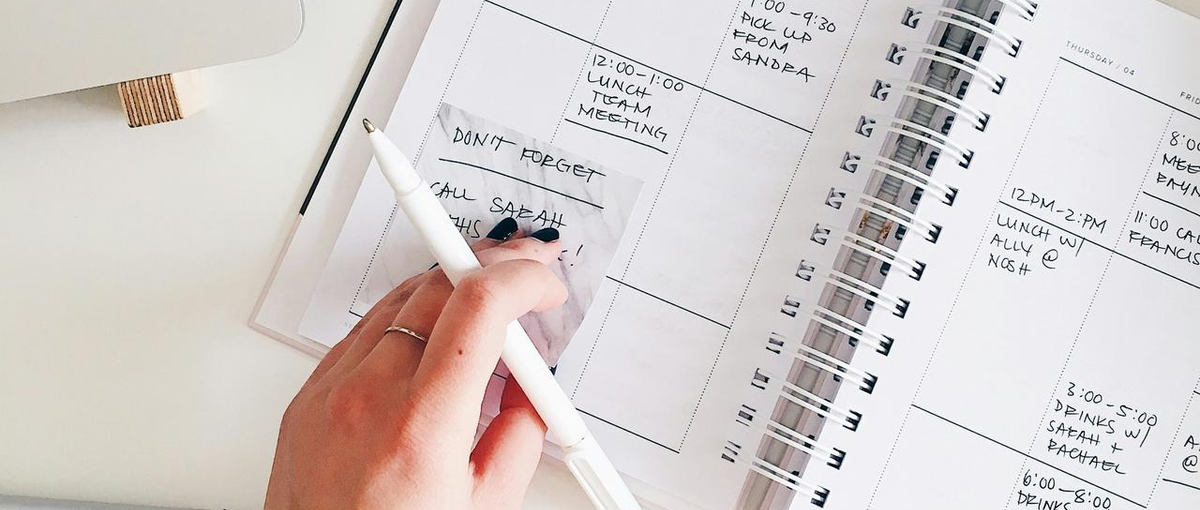 PICK UP
FROM
SANDRA
12:00-1:00
LUNCH
TEAM
MEETING
DON'T FORGET
CALL SARAH
THIS
!
THURSDAY / 04
12PM-2:PM
LUNCH W/
ALLY @
NOSH
3:00-5:00
DRINKS W/
SARAH +
RACHAEL
6:00-8:00
DRINKS
11:00